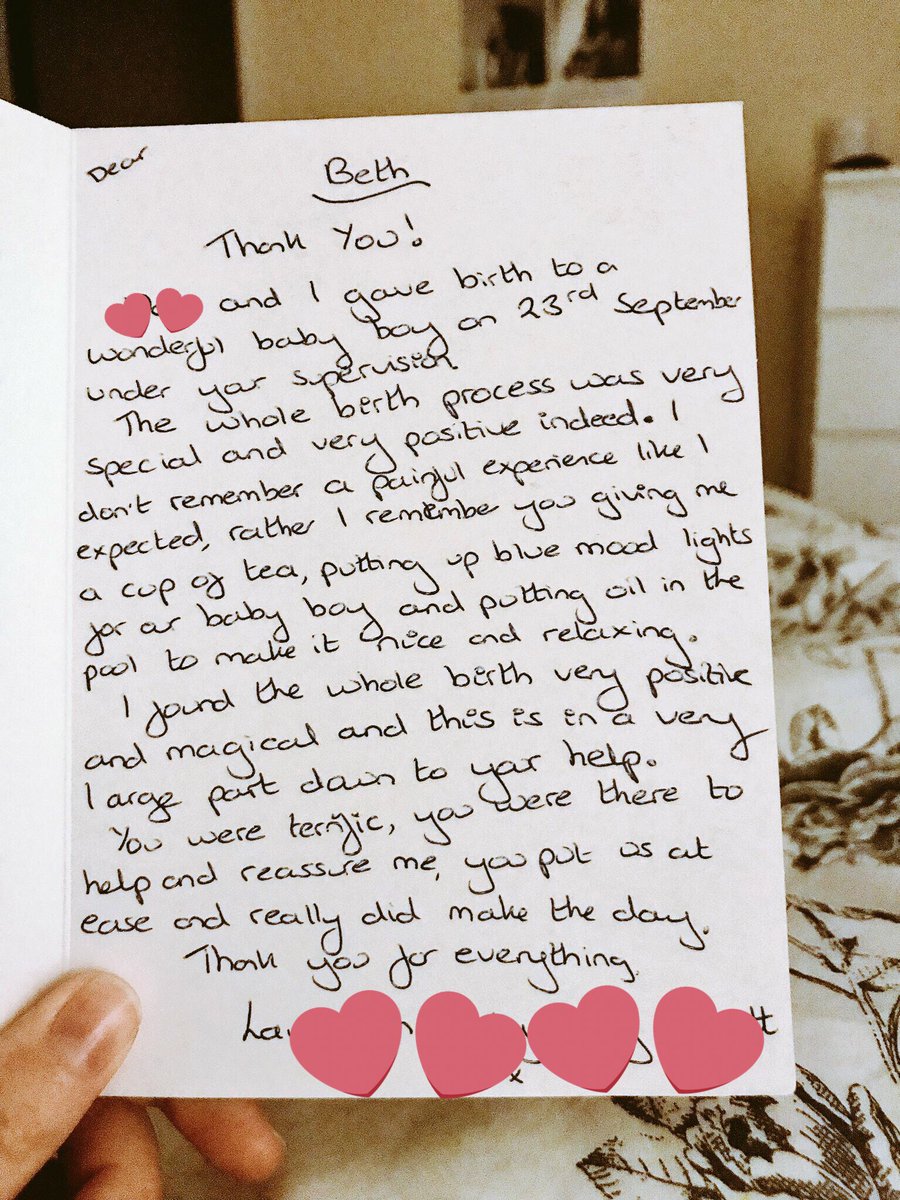 Dear
Beth
Thank You!
and I gave birth to a
wonderful baby boy on 23rd September
under your supervision
The whole birth process was very
special and very positive indeed. I
don't remember a painful experience like I
expected, rather I remember you giving me
a cup of tea, putting up blue mood lights
for our baby boy and putting oil in the
pool to make it nice and relaxing.
I found the whole birth very positive
and magical and this is in a very
large part down to your help.
You were terrific, you were there to
help and reassure me, you put us at
ease and really did make the day.
Thank you for everything.
x